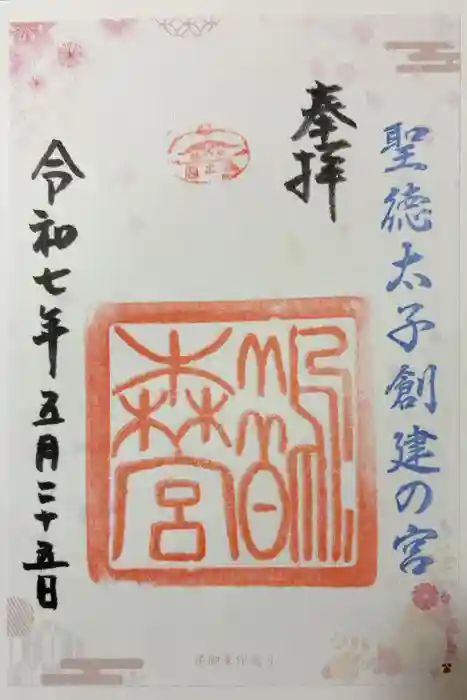 聖徳太子創建の宮
奉拝
鵲森宮
令和七年 五月二十五日